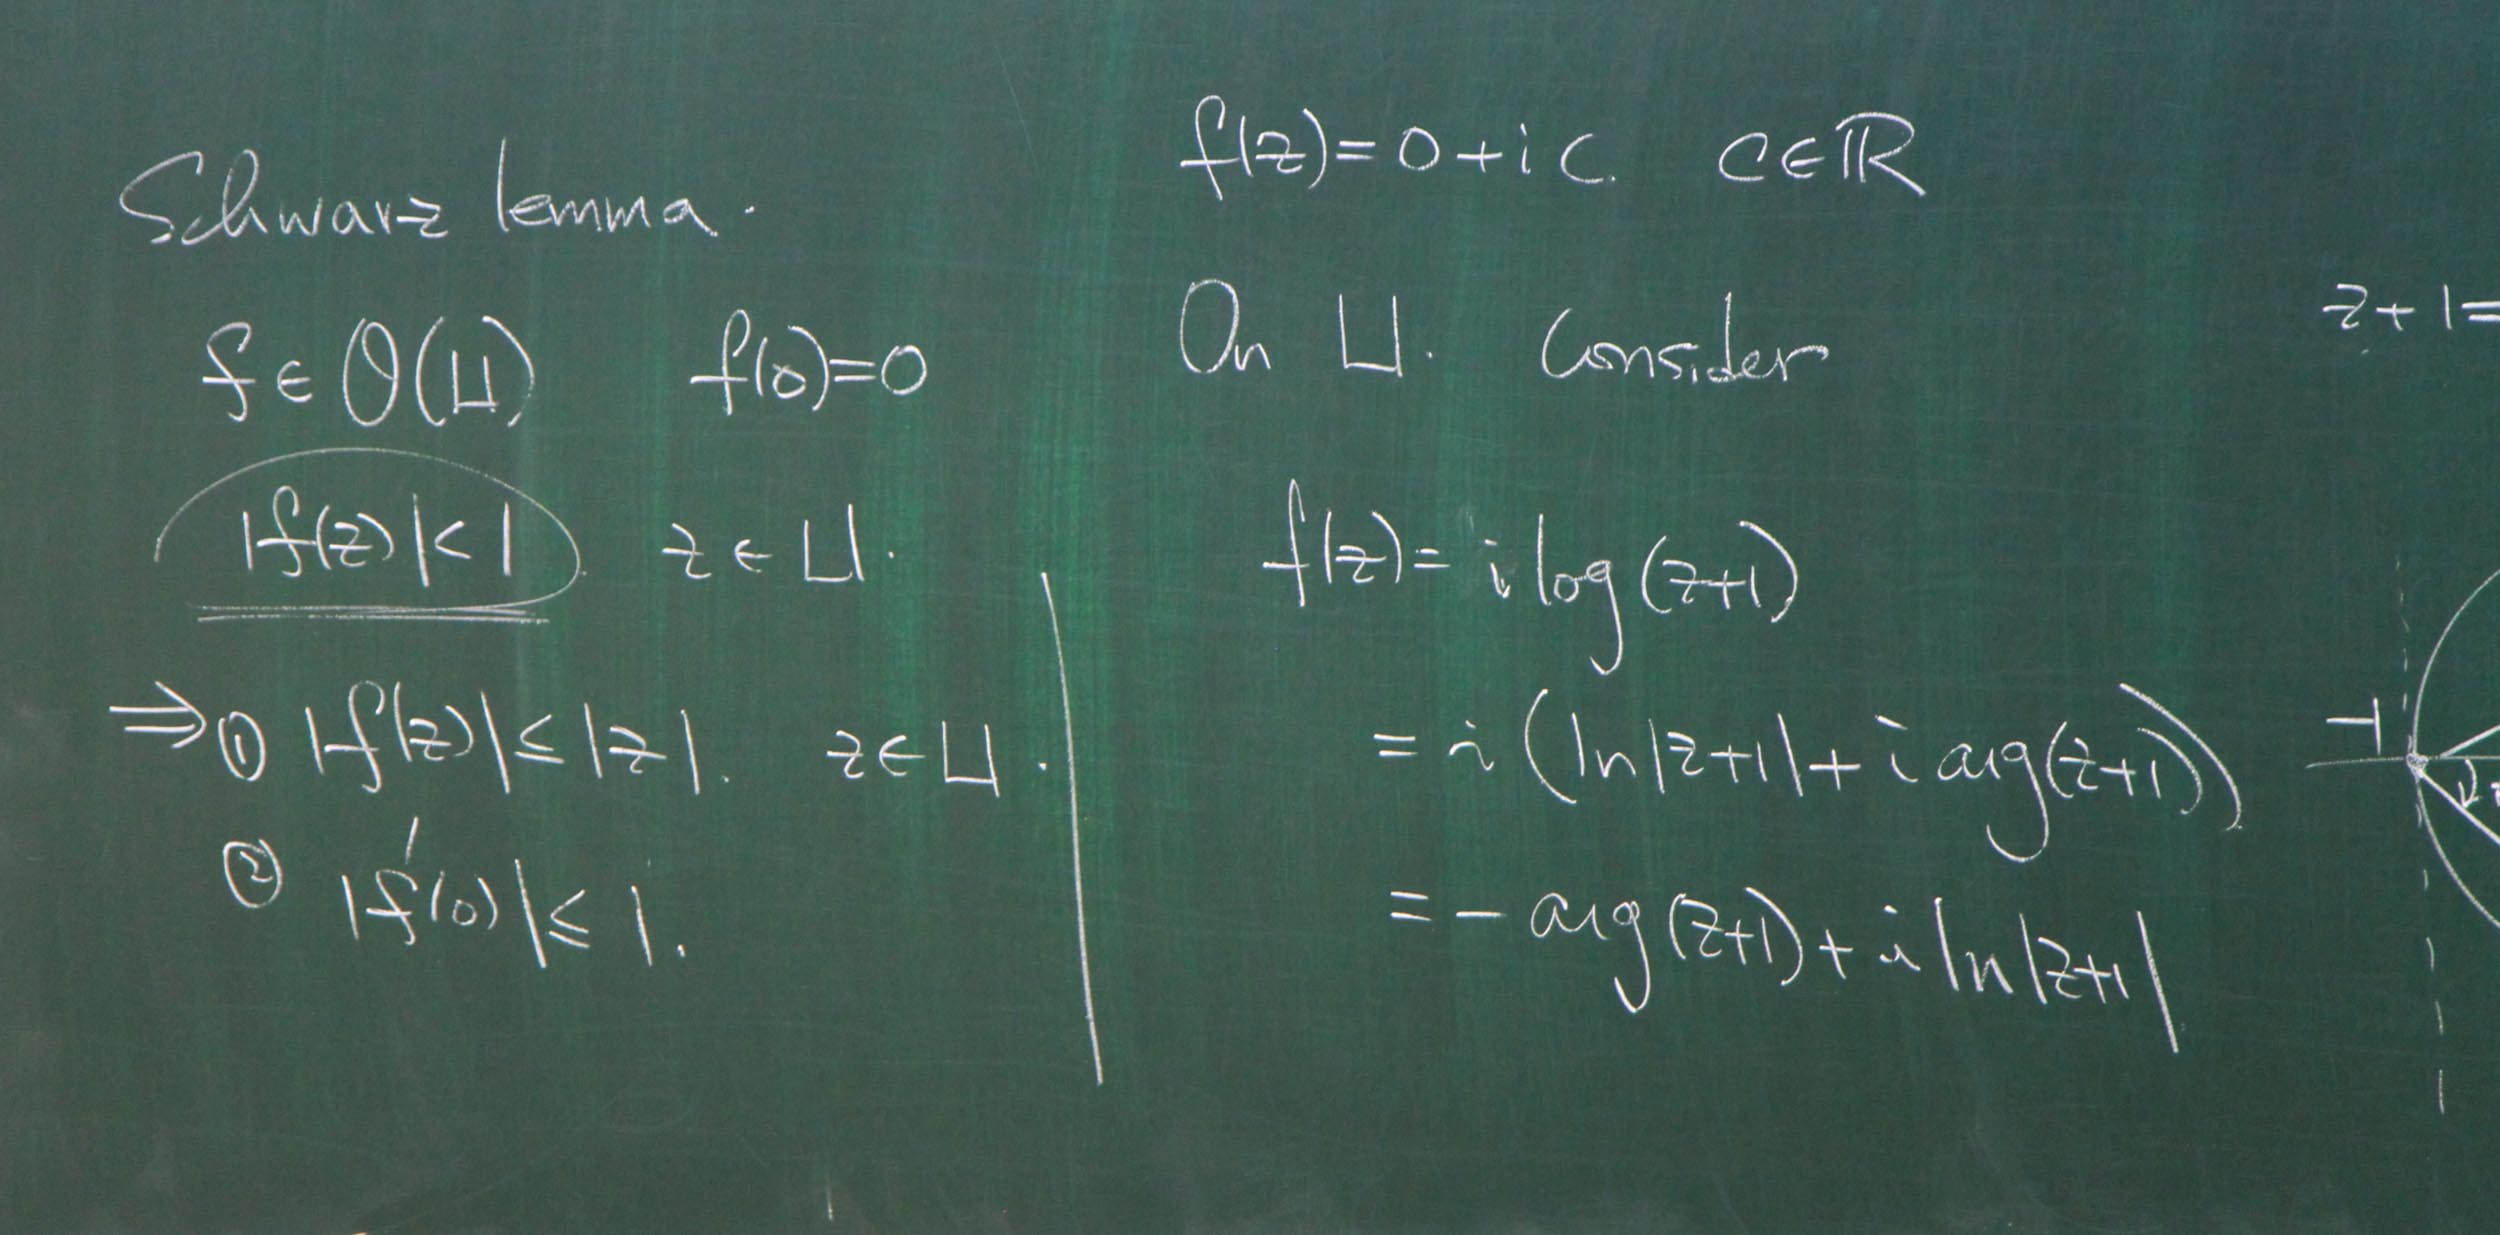 Schwarz lemma.
f ∈ O(U) f(0)=0
|f(z)| < 1 z ∈ U.
⇒ ① |f(z)| ≤ |z|. z ∈ U.
② |f'(0)| ≤ 1.
f(z) = 0 + i c. c ∈ ℝ
On U. Consider
f(z) = i log(z+1)
= i (ln|z+1| + i arg(z+1))
= - arg(z+1) + i ln|z+1|
z+1=
-1